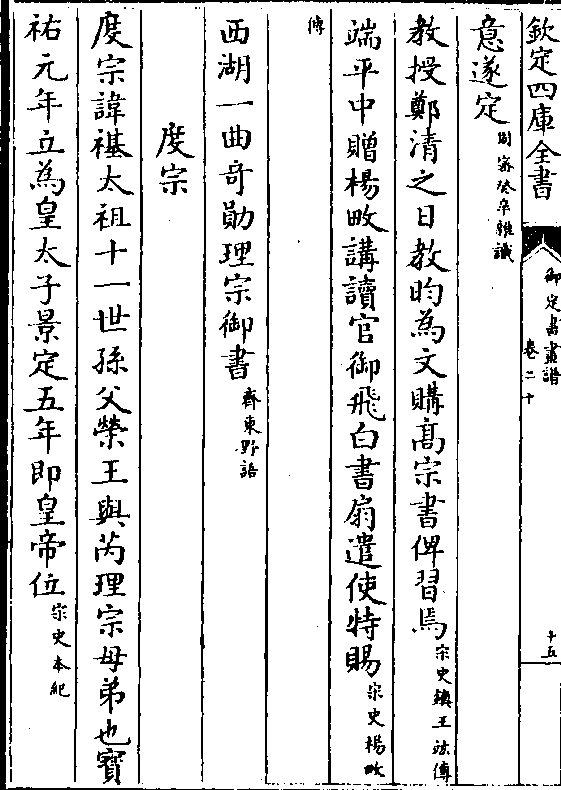 欽定四庫全書
御定書畫譜
卷二十
十五
意遂定周宻癸辛雜識
教授鄭清之日教昀為文購髙宗書俾習焉宋史鎮王竑傳
端平中贈楊畋講讀官御飛白書扇遣使特賜宋史楊畋
傳
西湖一曲奇勛理宗御書齊東野語
度宗
度宗諱禥太祖十一世孫父榮王與芮理宗母弟也寳
祐元年立為皇太子景定五年即皇帝位宋史本紀